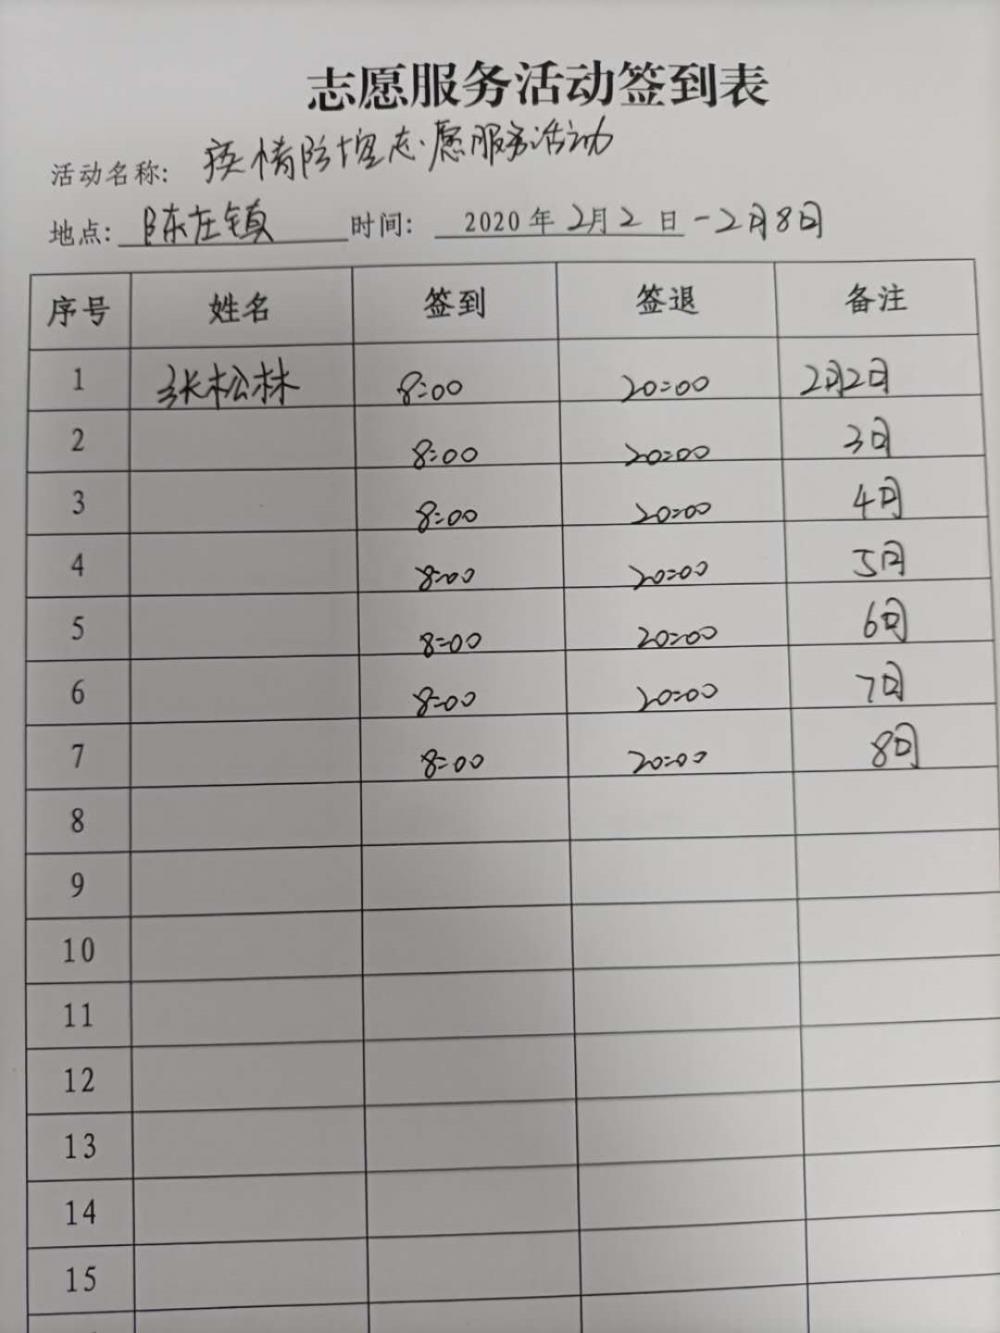 志愿服务活动签到表
活动名称: 疫情防控志愿服务活动
地点: 陈庄镇 时间: 2020年2月2日-2月8日
序号 姓名 签到 签退 备注
1 张松林 8:00 20:00 2月2日
2 8:00 20:00 3日
3 8:00 20:00 4日
4 8:00 20:00 5日
5 8:00 20:00 6日
6 8:00 20:00 7日
7 8:00 20:00 8日
8
9
10
11
12
13
14
15